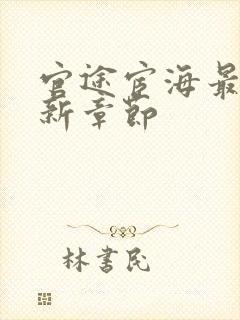 官途宦海最
新章节
林书民